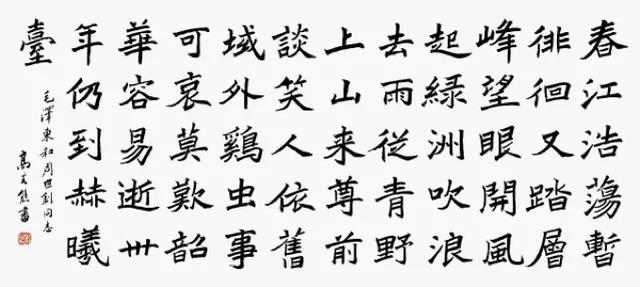 春江浩蕩暫
徘徊又踏層
峰望眼開風
起綠洲吹浪
去雨從青野
上山来尊前
談笑人依舊
域外鷄虫事
可哀莫歎韶
華容易逝卅
年仍到赫曦
臺
毛澤東和周世釗同志
高書